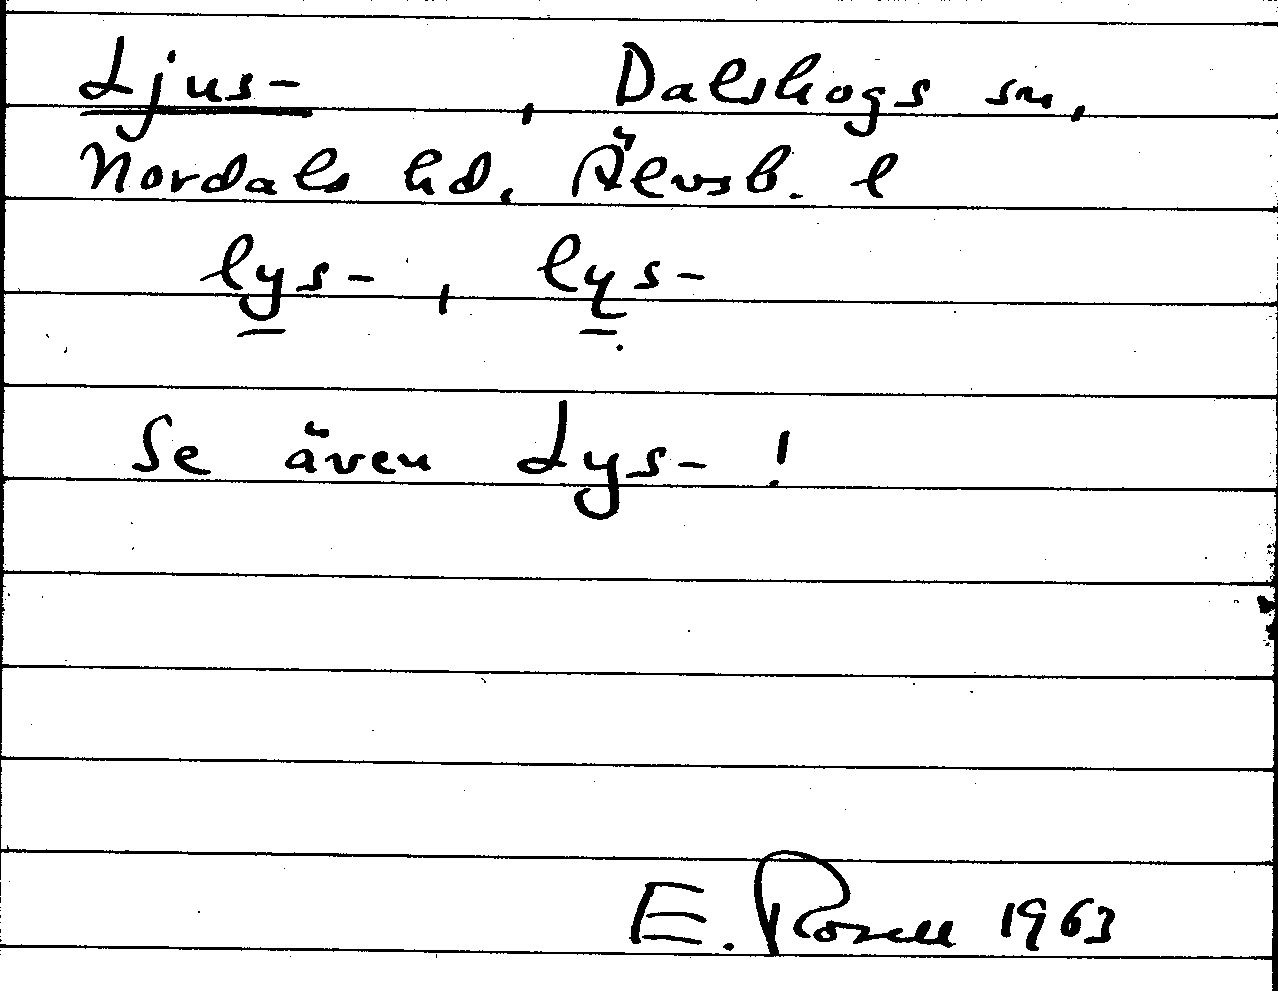 Ljus- , Dalskogs sn,
Nordals hd. Älvsb. l
lys- , lys-
Se även Lys- !
E. Rosell 1963